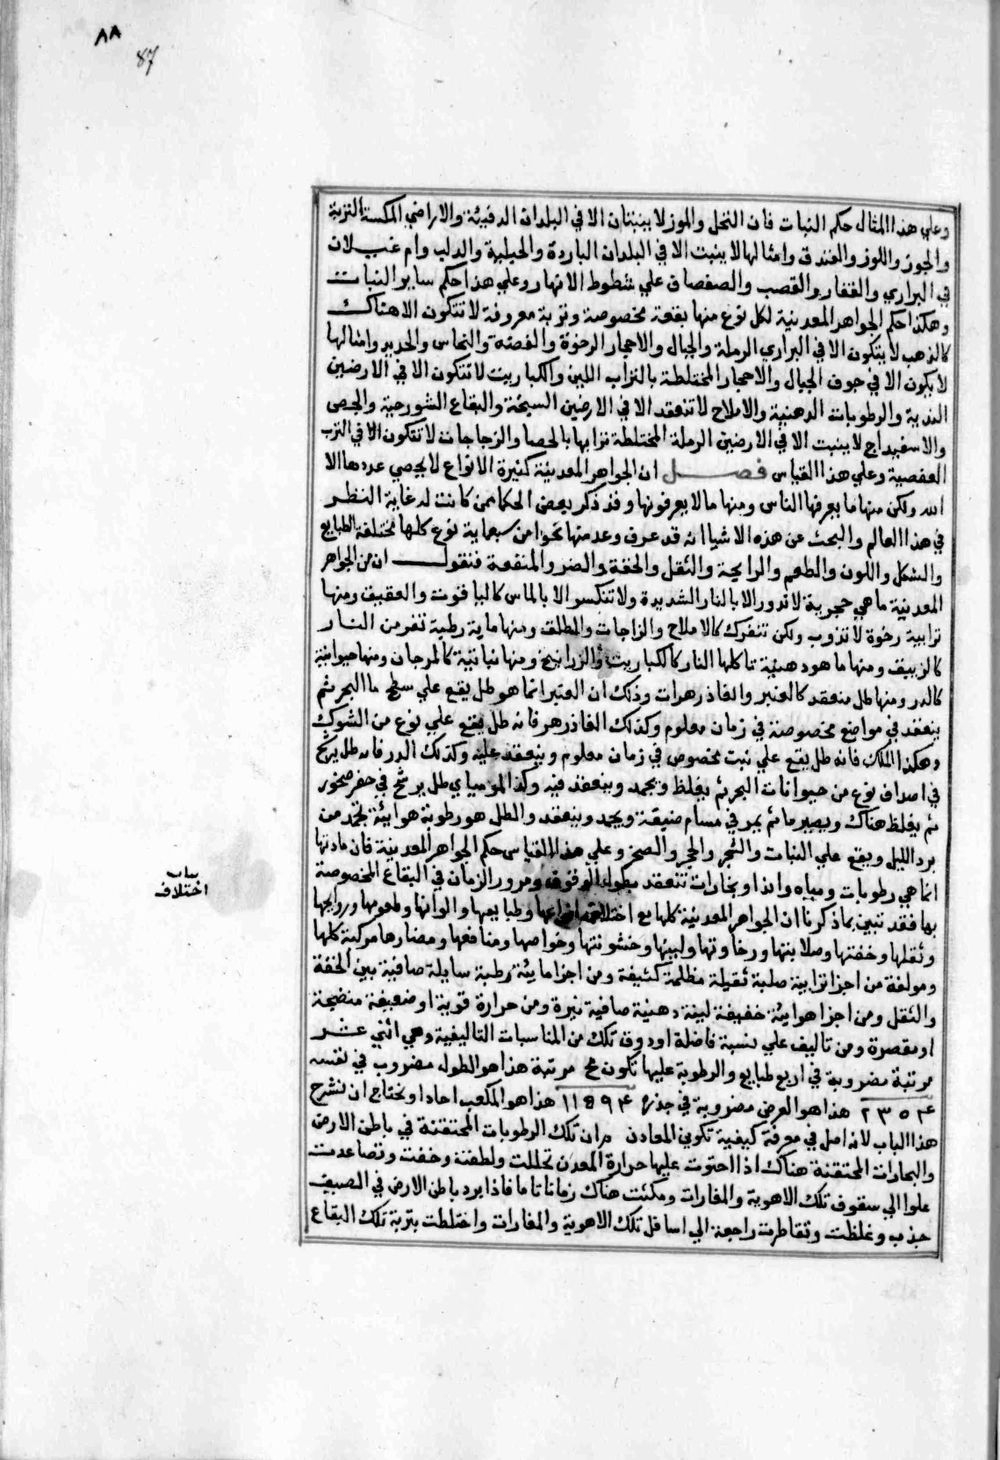 ٨٨
87
وعلي هذا المثال حكم النبات فان النخل والموز لا ينبتان الا في البلدان الدفيئة والاراضي المكسة التربة
والجوز واللوز والفندق وامثالها لا ينبت الا في البلدان الباردة والجبلية والدلب وام غيلان
في البراري والقفار والقصب والصفصاف علي شطوط الانهار وعلي هذا حكم ساير النبات
وهكذا حكم الجواهر المعدنية لكل نوع منها بقعة مخصوصة وتربة معروفة لا تتكون الا هناك
كالذهب لا يتكون الا في البراري الرملة والجبال والاحجار الرخوة والفضه والنحاس والحديد وامثالها
لا يكون الا في جوف الجبال والاحجار المختلطة بالتراب اللين والكباريت لا تتكون الا في الارضين
الندية والرطوبات الدهنية والاملاح لا تنعقد الا في الارضين السبخة والبقاع الشورجية والجص
والاسفيداج لا ينبت الا في الارضين الرملة المختلطة ترابها بالحصا والزجاجات لا تتكون الا في الترب
العفصية وعلي هذا القياس فصل ان الجواهر المعدنية كثيرة الانواع لا يحصي عددها الا
الله ولكن منها ما يعرفها الناس ومنها ما لا يعرفونها وقد ذكر بعض الحكما ممن كانت له غاية النظر
في هذا العالم والبحث عن هذه الاشيا انه قد عرف وعد منها نحوا من سبعماية نوع كلها مختلفة الطبايع
والشكل واللون والطعم والرايحة والثقل والخفة والضر والمنفعة فنقول ان من الجواهر
المعدنية ما هي حجرية لا تذوب الا بالنار الشديدة ولا تنكسر الا بالماس كالياقوت والعقيق ومنها
ترابية رخوة لا تذوب ولكن تنفرك كالاملاح والزاجات والطلق ومنها ماية رطبة تفر من النار
كالزيبق ومنها ما هو دهنية تاكلها النار كالكباريت والزرانيخ ومنها نباتية كالمرجان ومنها حيوانية
كالدر ومنها طل منعقد كالعنبر والفاذزهرات وذلك ان العنبر انما هو طل يقع علي سطح ما البحر ثم
ينعقد في مواضع مخصوصة في زمان معلوم وكذلك الفاذزهر فانه طل يقع علي نوع من الشوك
وهكذا اللك فانه طل يقع علي نبت مخصوص في زمان معلوم وينعقد عليه وكذلك الدر فانه طل يرشح
في اصداف نوع من حيوانات البحر ثم يغلظ ويجمد وينعقد فيه وكذا الموميا ي طل يرشح في حفر صخور
ثم يغلظ هناك ويصير ما ثم يمر في مسام ضيقة ويجمد وينعقد والطل هو رطوبة هوائية تجمد من
برد الليل ويقع علي النبات والشجر والحجر والصخر وعلي هذا القياس حكم الجواهر المعدنية فان مادتها
انما هي رطوبات ومياه وانذا وبخارات تنعقد بطول الوقوف ومرور الزمان في البقاع المخصوصة
بها فقد تبين بما ذكرنا ان الجواهر المعدنية كلها مع اختلاف انواعها وطبايعها والوانها وطعومها وروايحها
وثقلها وخفتها وصلابتها ورخاوتها ولينها وخشونتها وخواصها ومنافعها ومضارها مركبة كلها
ومولفة من اجزا ترابية صلبة ثقيلة مظلمة كثيفة ومن اجزا مائية رطبة سايلة صافية بين الخفة
والثقل ومن اجزا هوائية خفيفة لينة دهنية صافية نيرة ومن حرارة قوية او ضعيفة منضجة
او مقصرة ومن تاليف علي نسبة فاضلة او دون تلك من المناسبات التاليفية وهي اثني عشر
مرتبة مضروبة في اربع طبايع والرطوبة عليها تكون مح مرتبة هذا هو الطول مضروب في نفسه
٢٣٥۴ هذا هو العرض مضروبة في جذره ١١٥٩۴ هذا هو المكعب احادا ونحتاج ان نشرح
هذا الباب لانه اصل في معرفة كيفية تكوين المعادن ان تلك الرطوبات المحتقنة في باطن الارض
والبخارات المحتقنة هناك اذا احتوت عليها حرارة المعدن تحللت ولطفت وخفت وتصاعدت
علوا الي سقوف تلك الاهوية والمغارات ومكثت هناك زمانا تاما فاذا برد باطن الارض في الصيف
جذب وغلظت وتقاطرت راجعة الي اسافل تلك الاهوية والمغارات واختلطت بتربة تلك البقاع
باب
اختلاف